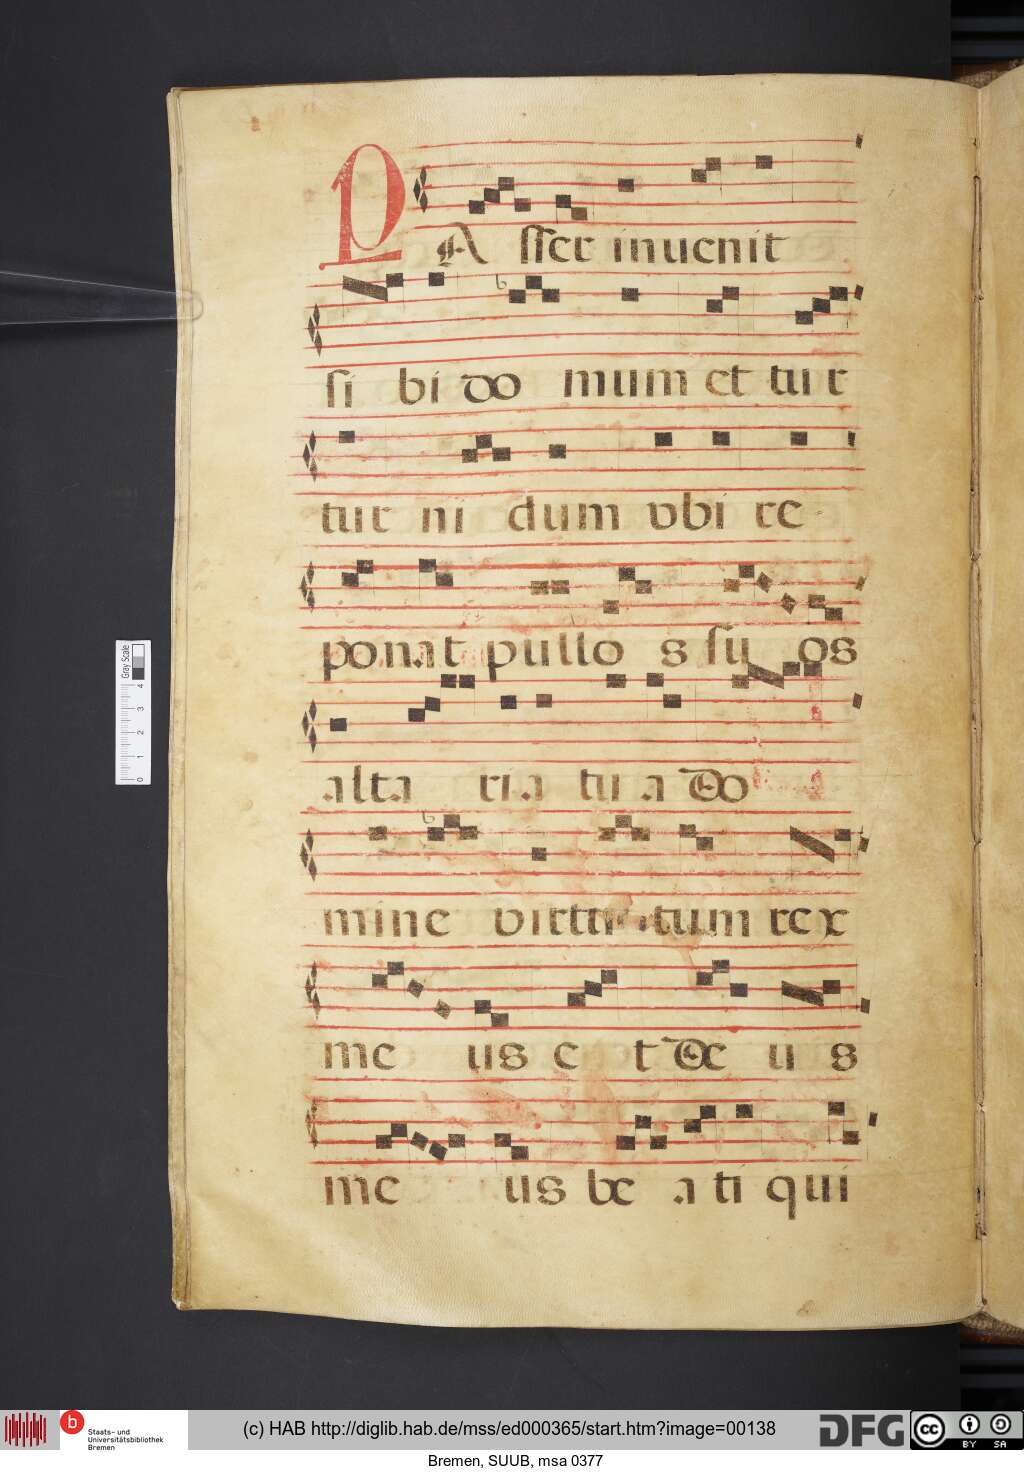 PAsser inuenit
si bi do mum et tu r
tur ni dum vbi re
ponat pullo s su os
alta ria tu a Do
mine virtu tum rex
me us e t De u s
me us be a ti qui
Gray Scale
0 1 2 3 4
b Staats- und Universitätsbibliothek Bremen
(c) HAB http://diglib.hab.de/mss/ed000365/start.htm?image=00138
DFG
cc BY SA
Bremen, SUUB, msa 0377